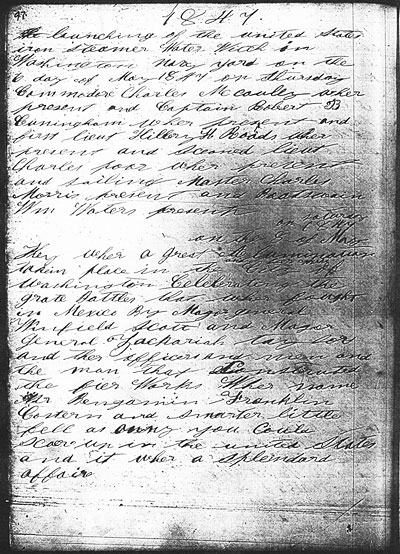 97
1847.
the launching of the united States
iron steamer Water Witch in
Washington navy yard on the
6 day of May 1847 on thursday
Commodore Charles Mcauley wher
present and Captain Robert B
Cuningham wher present and
first lieut Hillery H. Roads wher
present and Second lieut
Charles poor wher present
and sailing Master Charles
Morris present and Boatswain
Wm Waters present
on saturday
on the 8 of May
they wher a great illumination
taken place in the City of
Washington Celebrating the
grate Battles that wher fought
in Mexico By Major general
Winfield Scott and Major
General Zachariah taylor
and ther officers and men and
the man that Constructed
the fier Works Wher name
Mr Benjamin Franklin
Costern and smarter little
fell as anny you Could
Scear up in the united States
and it wher a splendard
affair